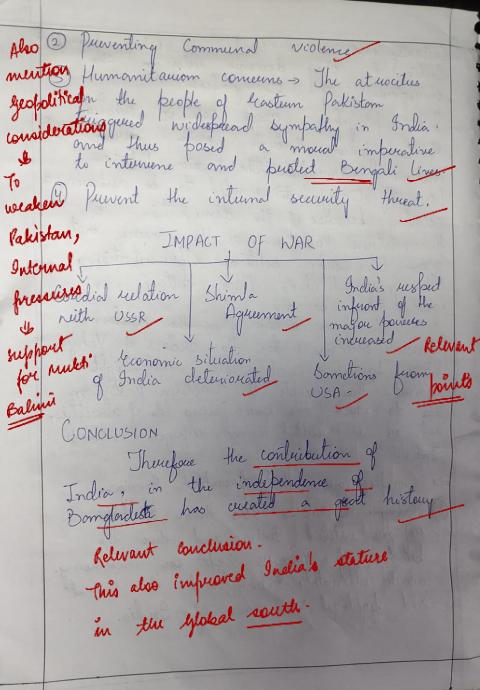 ② Preventing Communal violence
Also
mention
geopolitical
considerations
↓
To
weaken
Pakistan,
Internal
pressures
⇓
support
for mukti
Bahini
③ Humanitarian concerns → The atrocities
on the people of Eastern Pakistan
triggered widespread sympathy in India.
and thus posed a moral imperative
to intervene and protect Bengali lives.
④ Prevent the internal security threat.
IMPACT OF WAR
Cordial relation
with USSR
Shimla
Agreement
India's respect
infront of the
major powers
increased
Relevant
points
Economic situation
of India deteriorated
Sanctions from
USA
CONCLUSION
Therefore the contribution of
India, in the independence of
Bangladesh has created a great history
Relevant conclusion.
This also improved India's stature
in the global south.